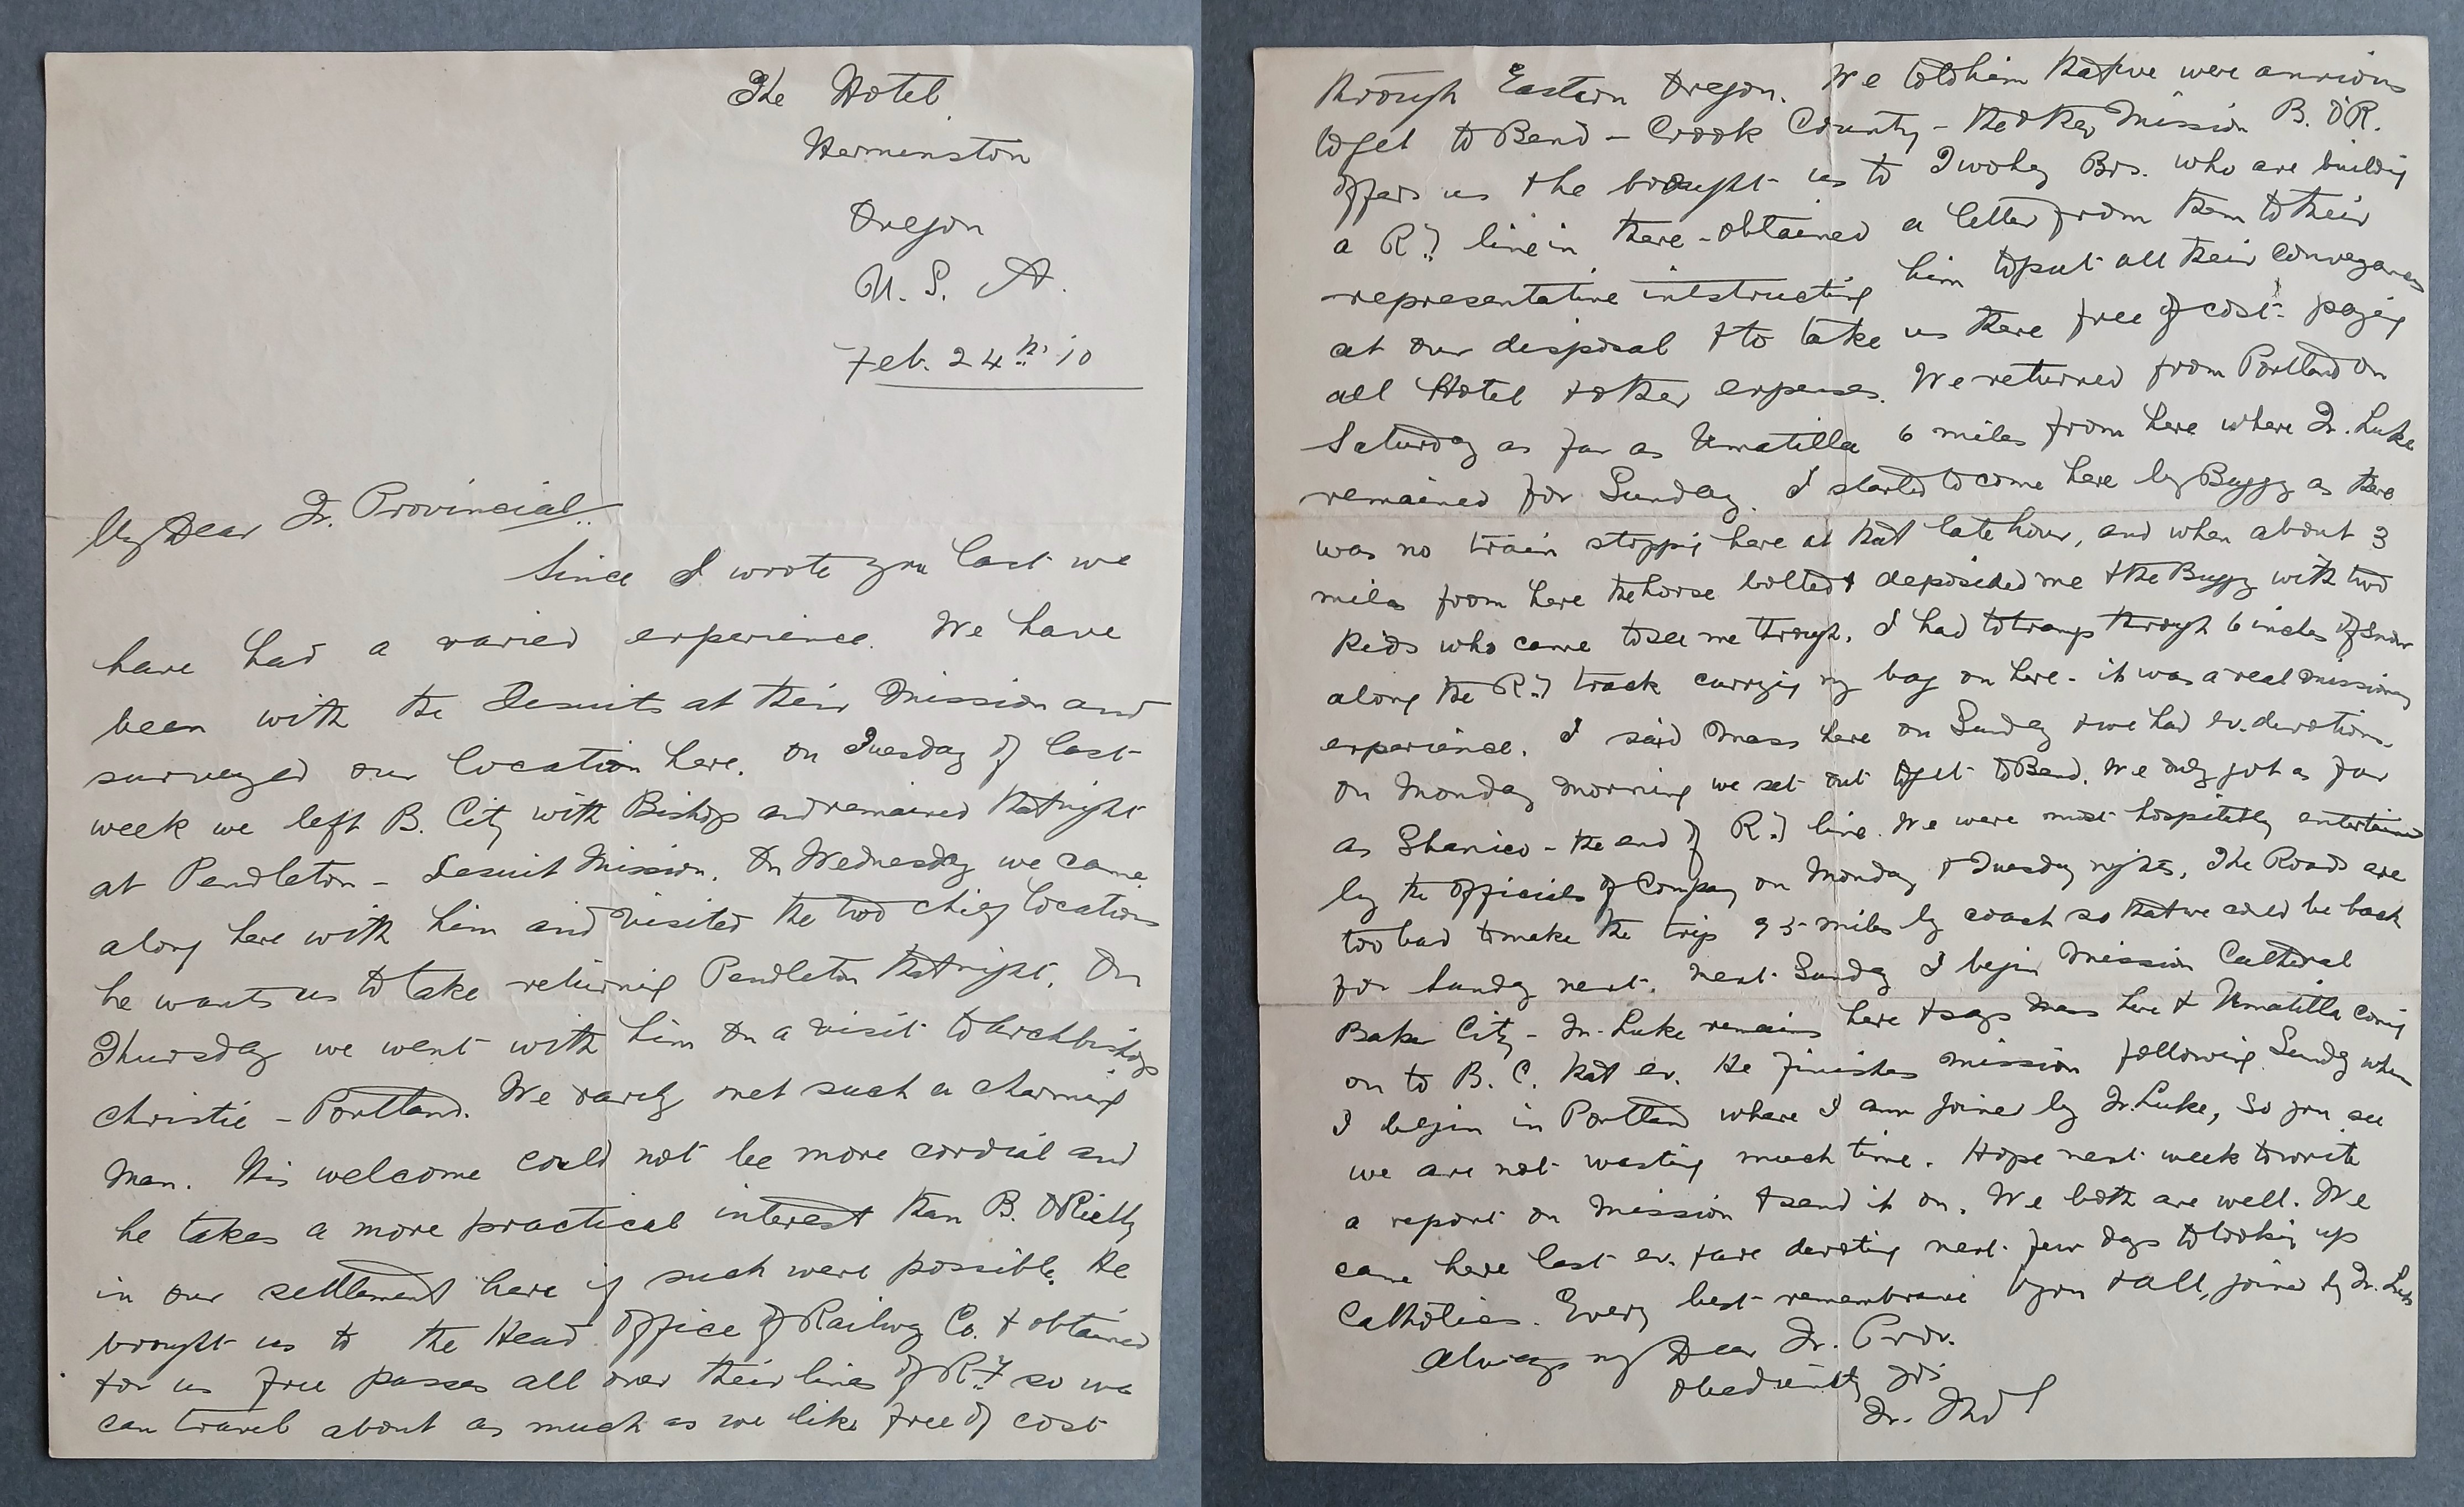 The Hotel
Herminston
Oregon
U. S. A.
Feb. 24th '10
My Dear Fr. Provincial.
Since I wrote you last we
have had a varied experience. We have
been with the Jesuits at their Mission and
surveyed our location here. On Tuesday of last
week we left B. City with Bishop and remained that night
at Pendleton - Jesuit Mission. On Wednesday we came
along here with him and visited the two chief locations
he wants us to take returning Pendleton that night. On
Thursday we went with him on a visit to Archbishop
Christie - Portland. We rarely met such a charming
man. His welcome could not be more cordial and
he takes a more practical interest than B. O'Rielly
in our settlement here if such were possible. He
brought us to the Head Office of Railway Co. & obtained
for us free passes all over their lines of Ry so we
can travel about as much as we like free of cost
through Eastern Oregon. We told him that we were anxious
to get to Bend - Crook County - the other Mission B. O'R.
offers us & he brought us to Twohey Bros. who are building
a Ry line in there - obtained a letter from them to their
representative intstructing him to put all their conveyances
at our disposal & to take us there free of cost paying
all Hotel & other expenses. We returned from Portland on
Saturday as far as Umatilla 6 miles from here where Fr. Luke
remained for Sunday. I started to come here by Buggy as there
was no train stoppig here at that late hour, and when about 3
miles from here the horse bolted & deposited me & the Buggy with two
kids who came to see me through. I had to tramp through 6 inches of snow
along the Ry track carryig my bag on here - it was a real missionary
experience. I said Mass here on Sunday & we had ev. devotions.
On Monday morning we set out to get to Bend. We only got as far
as Shanico - the end of Ry line. We were most hospitably entertained
by the officials of Company on Monday & Tuesday nights. The Roads are
too bad to make the trip 95 miles by coach so that we could be back
for Sunday next. Next Sunday I begin Mission Cathedral
Baker City - Fr. Luke remains here & says Mass here & Umatilla comig
on to B. C. that ev. He finishes mission following Sunday when
I begin in Portland where I am joined by Fr. Luke, so you see
we are not wasting much time. Hope next week to write
a report on Mission & send it on. We both are well. We
came here last ev. & are devoting next few days to lookig up
Catholics. Every best remembrance to you & all, joined by Fr. Luke
Always my Dear Fr. Prov.
Obediently yrs
Fr. Thos